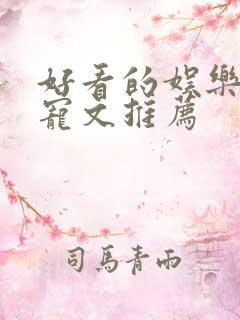 好看的娱樂
寵文推薦
司馬青雨